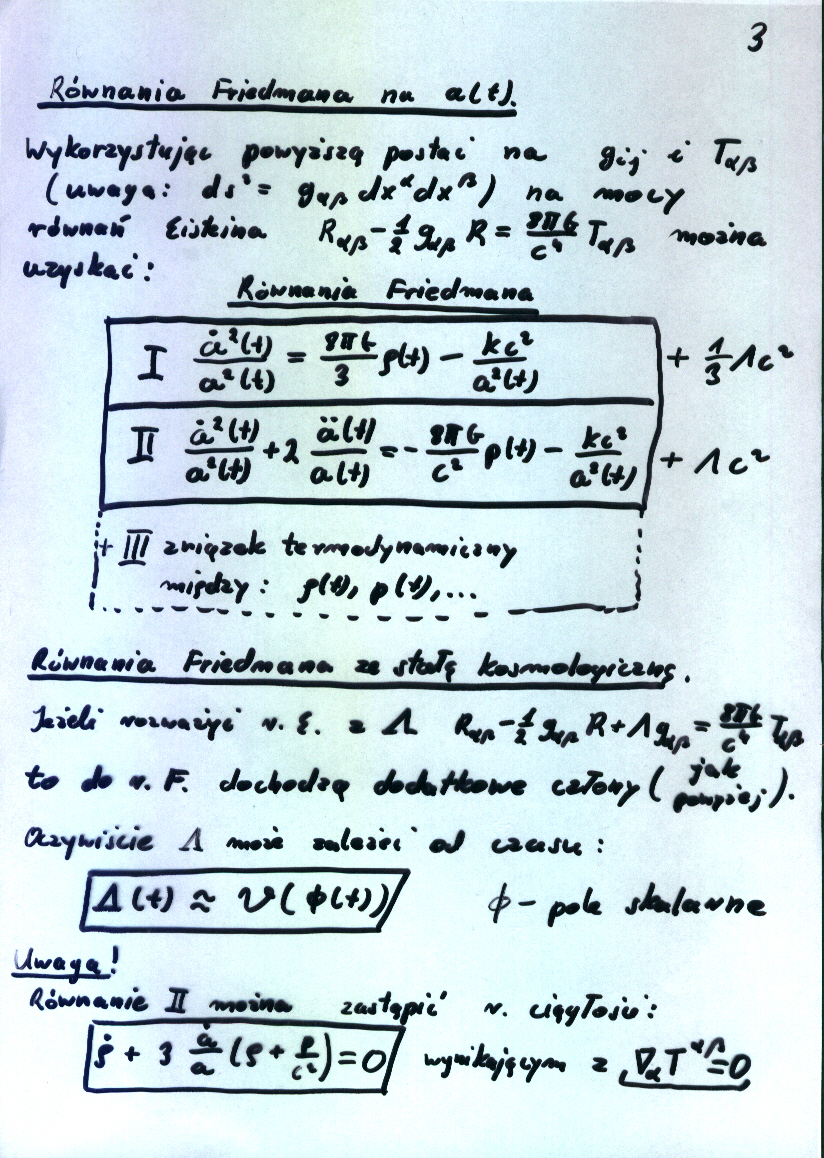 3
Równania Friedmana na a(t).
Wykorzystując powyższą postać na gij i Tαβ
(uwaga: ds² = gαβ dxᵅdxᵝ) na mocy
równań Eisteina Rαβ - ½ gαβ R = 8πG/c⁴ Tαβ można
uzyskać:
Równania Friedmana
I ȧ²(t)/a²(t) = 8πG/3 ρ(t) − kc²/a²(t) + 1/3 Λc²
II ȧ²(t)/a²(t) + 2 ä(t)/a(t) = − 8πG/c² p(t) − kc²/a²(t) + Λc²
+ III związek termodynamiczny
między: ρ(t), p(t), ...
Równania Friedmana ze stałą kosmologiczną.
Jeżeli rozważyć r. E. z Λ Rαβ - ½ gαβ R + Λgαβ = 8πG/c⁴ Tαβ
to do r. F. dochodzą dodatkowe człony (jak powyżej).
Oczywiście Λ może zależeć od czasu:
Λ(t) ≈ V(ϕ(t)) ϕ - pole skalarne
Uwaga!
Równanie II można zastąpić r. ciągłości:
ρ̇ + 3 ȧ/a (ρ + p/c²) = 0 wynikającym z ∇αTᵅᵝ=0